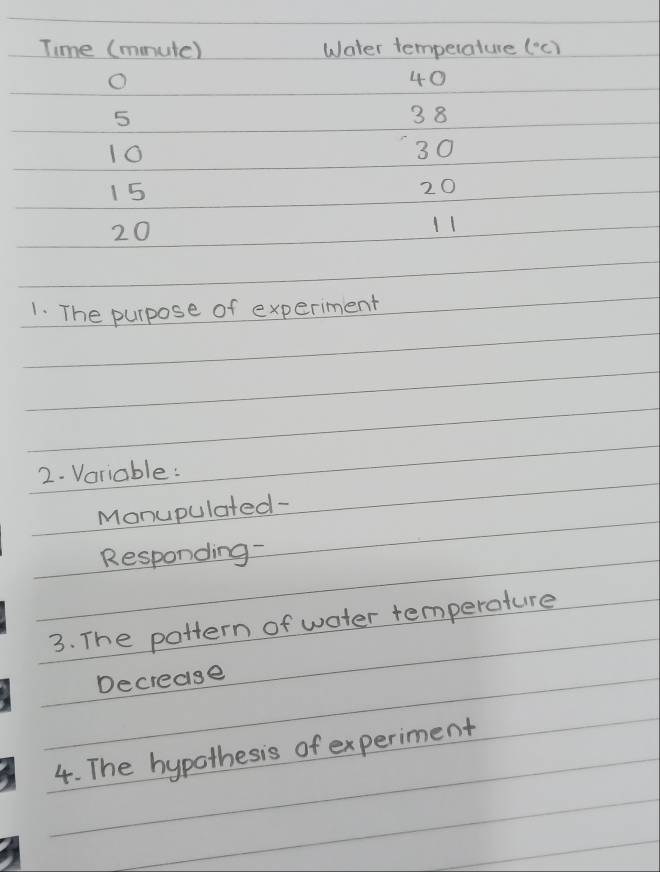 Time (minute) Water temperature (°C)
0 40
5 38
10 30
15 20
20 11
1. The purpose of experiment
2. Variable:
Manupulated-
Responding-
3. The pattern of water temperature
Decrease
4. The hypothesis of experiment